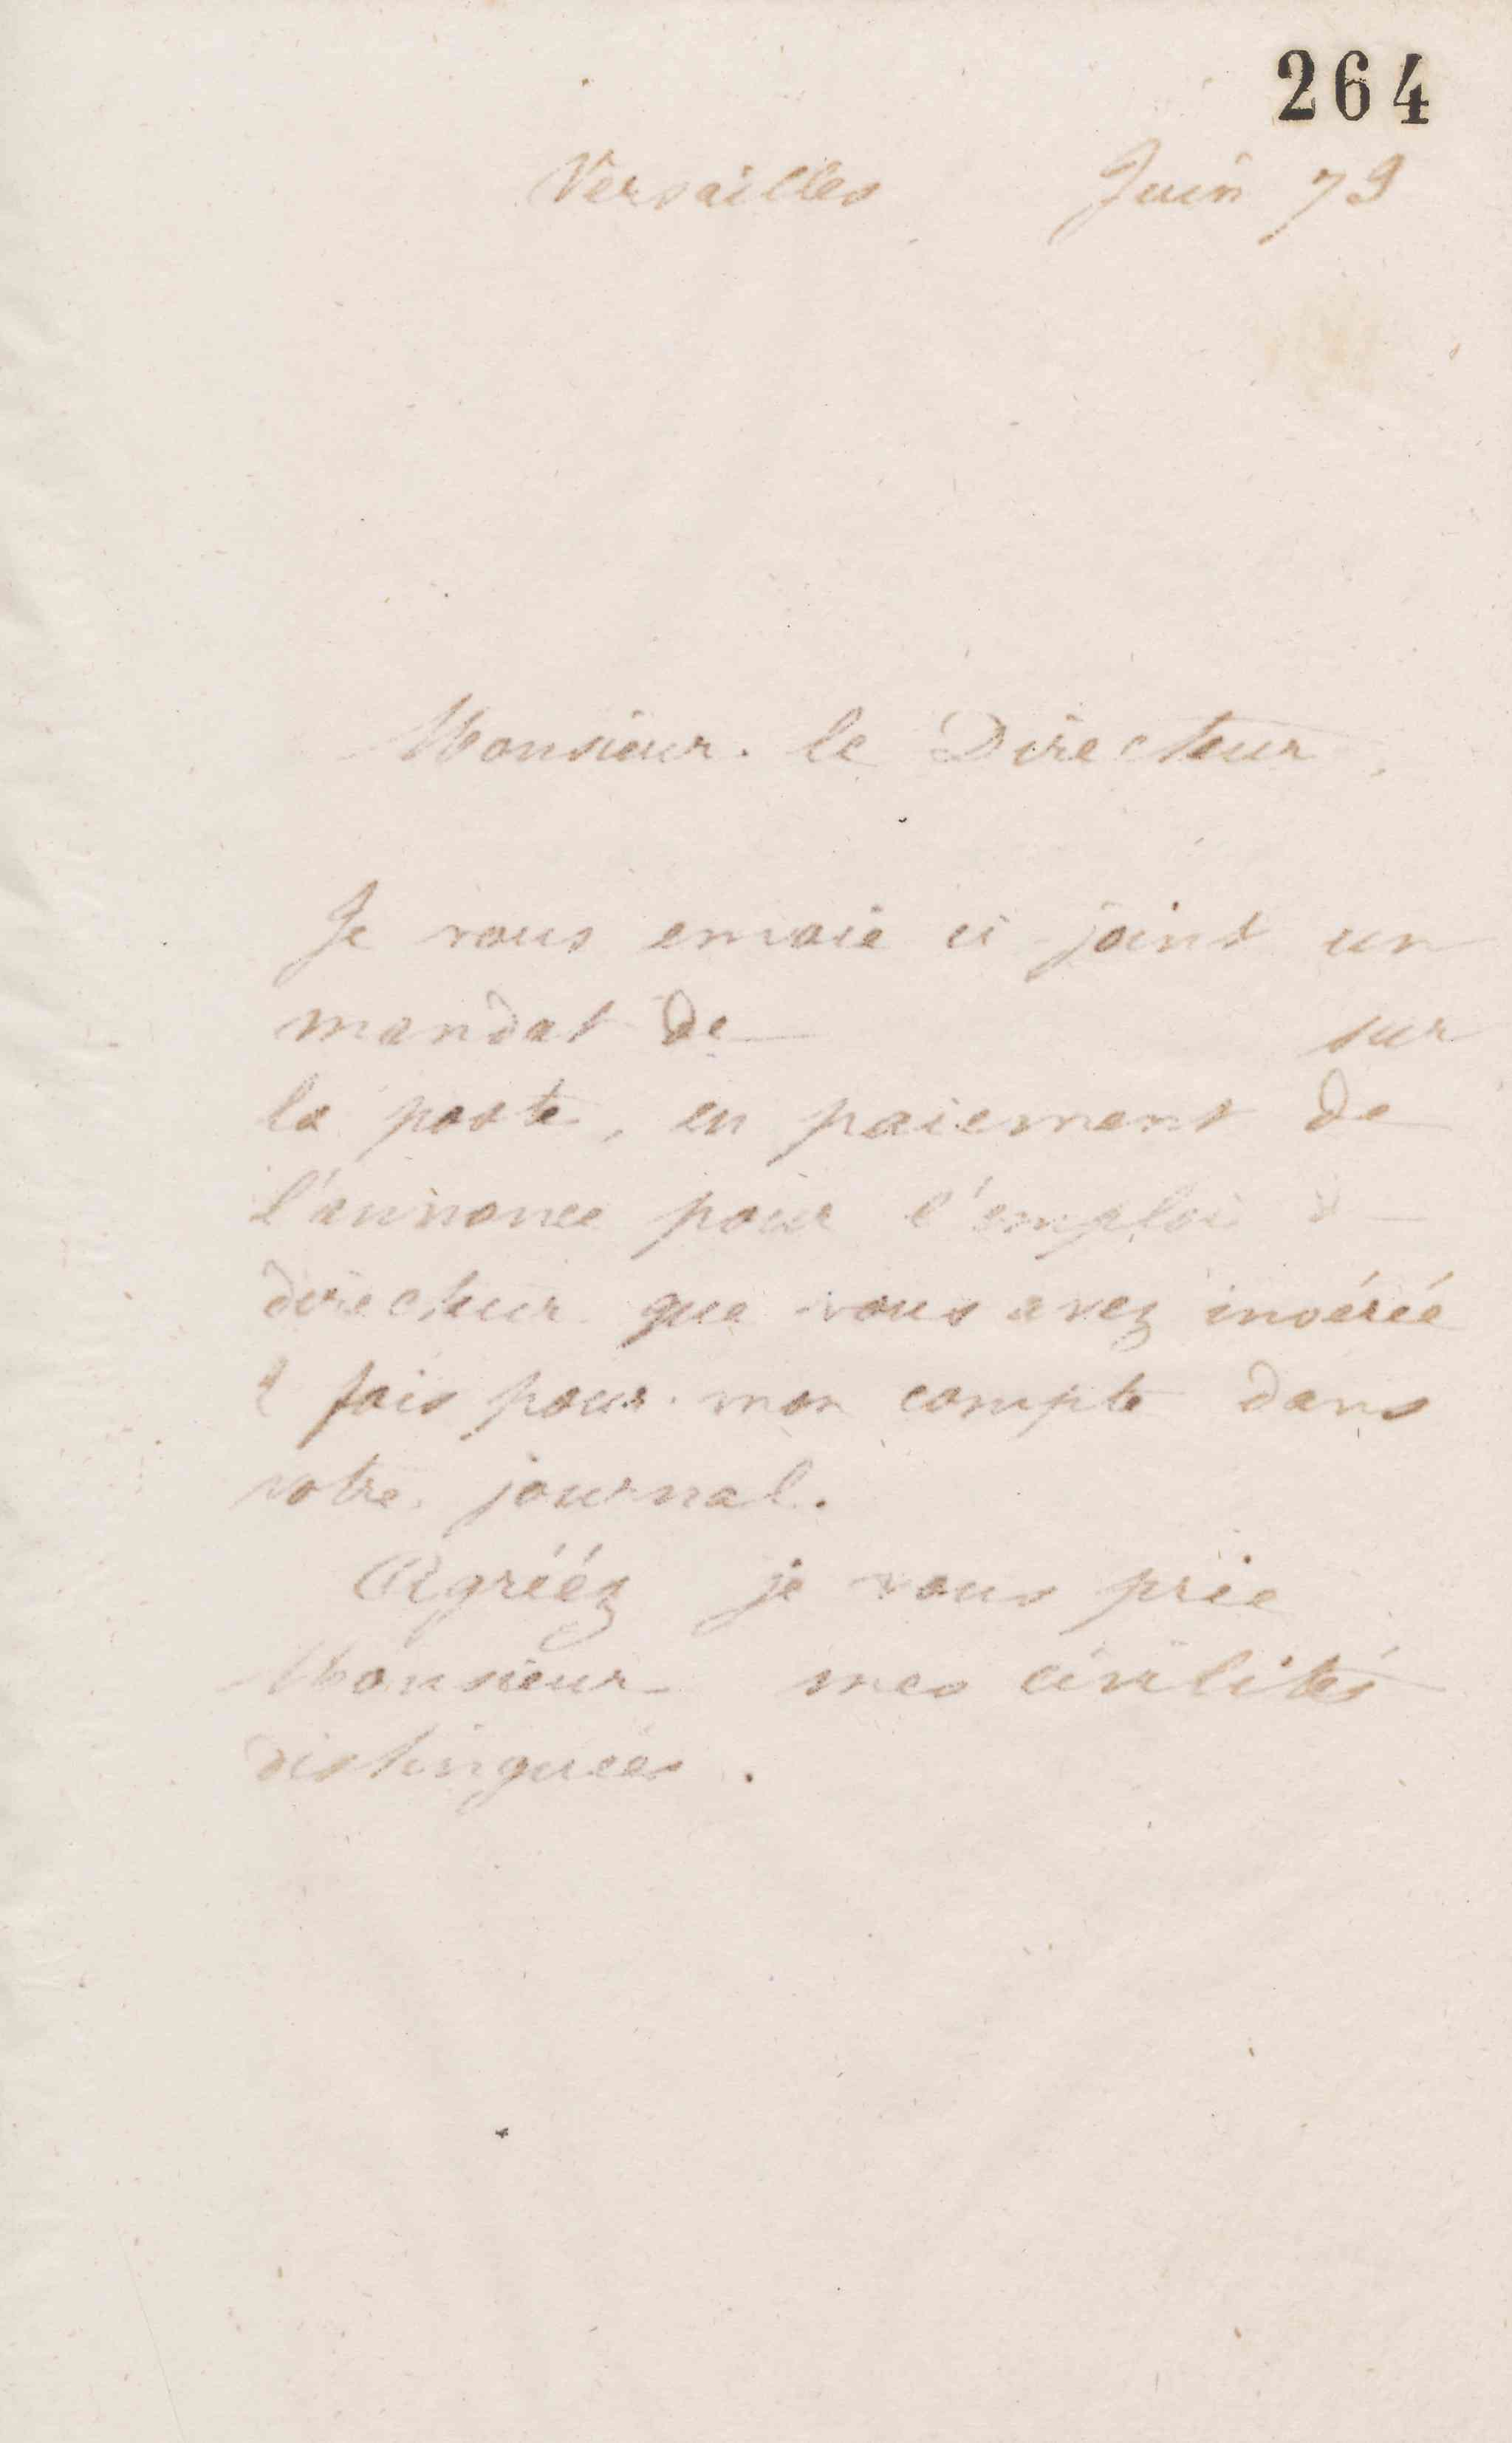 264
Versailles Juin 79
Monsieur le Directeur,
Je vous envoie ci joint un
mandat de sur
la poste, en paiement de
l'annonce pour l'emploi d
directeur que vous avez insérée
fois pour mon compte dans
votre journal.
Agréez je vous prie
Monsieur mes civilités
distinguées.